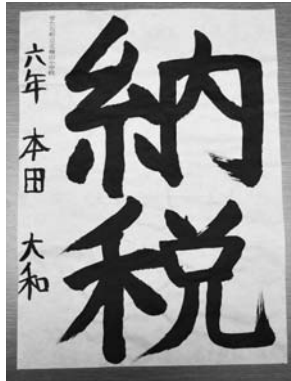 納税
六年 本田 大和